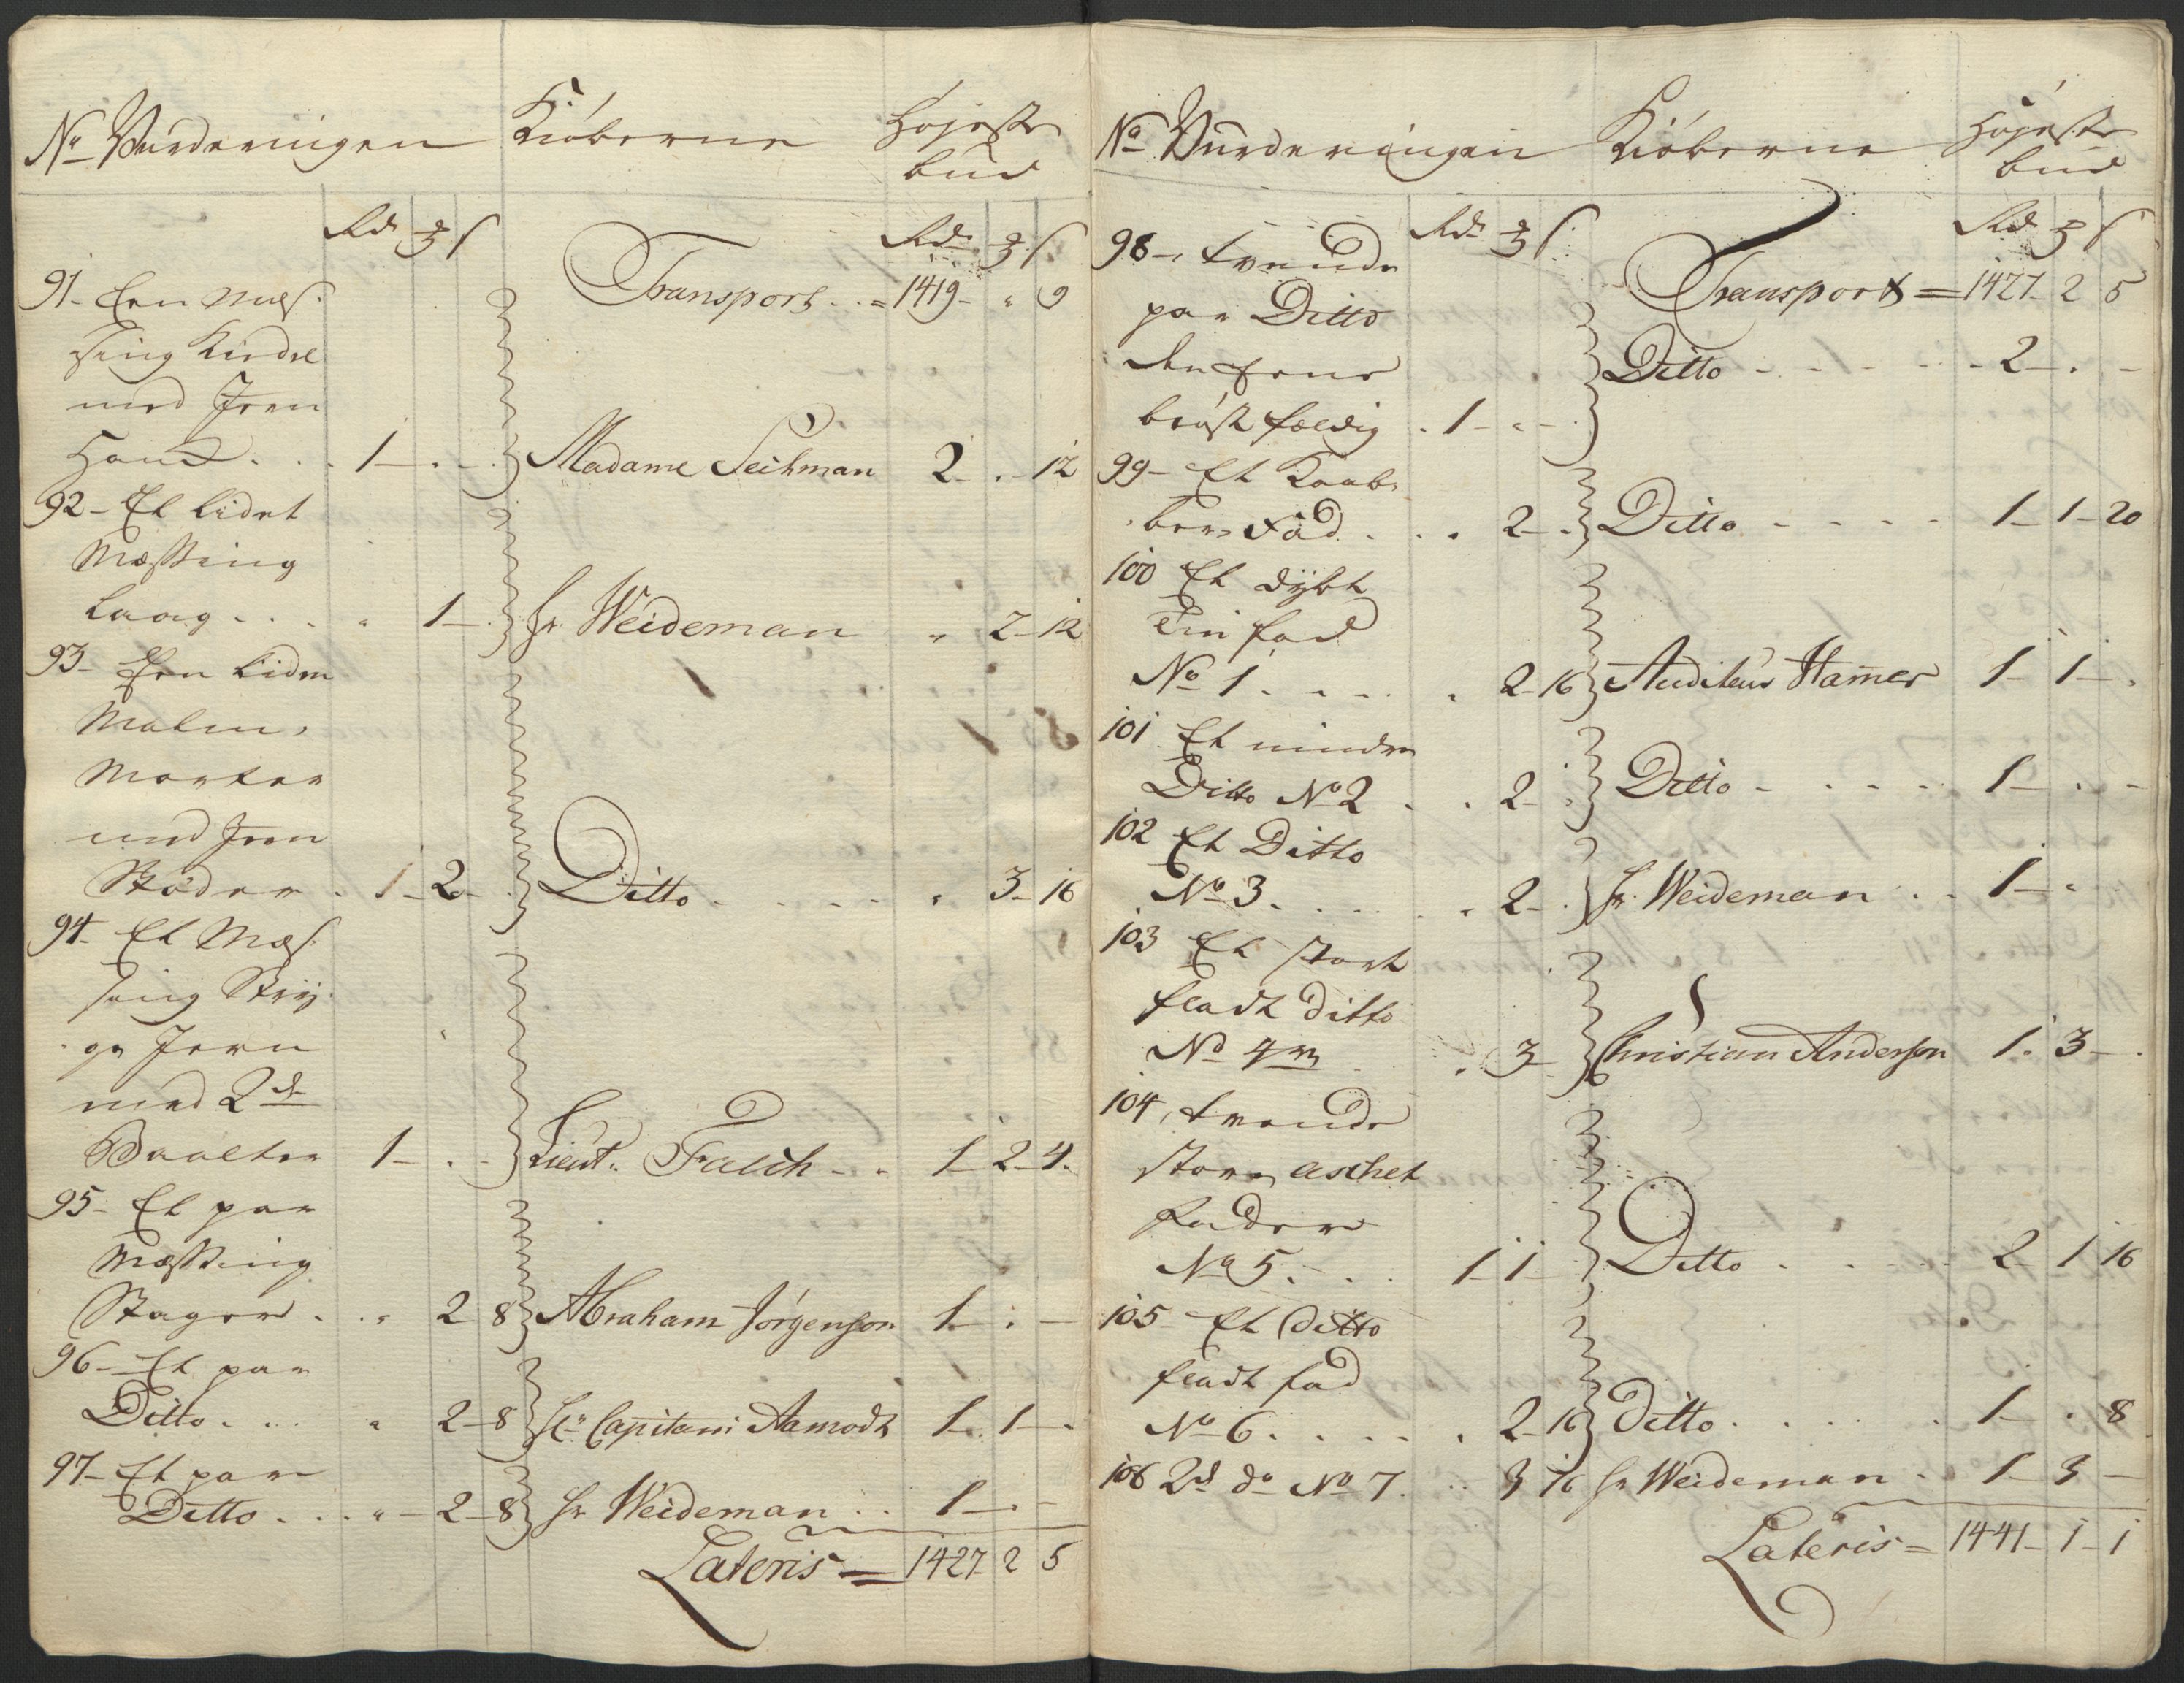 No Vurderingen Kiöberne Højeste
bud
Rdr ȝ ſ Rdr ȝ ſ
Transport = 1419 - " 9
91 - Een Mes-
sing Kiedel
med Jern
Hand . . . 1 - . - Madame Teihman 2 - . - 12
92 - Et lidet
Messing
Laag . . . " 1 - . Sr Weideman " 2 - 12
93 - Een liden
Malm-
Morter
med Jern
Støder . 1 - 2 - . Ditto . . . . " 3 - 16
94 - Et Mes-
sing Stry-
ge Jern
med 2de
Baalter 1 - . - Lieut: Falch - . 1 - 2 - 4
95 - Et par
Messing
Stager . . " 2 8 Abraham Jörgensen 1 - . -
96 - Et par
Ditto . . . " 2 - 8 Hr Capitain Aamodt 1 - 1 - .
97 - Et par
Ditto . . . " - 2 - 8 Sr Weideman . . 1 - . -
Lateris = 1427 2 5
No Vurderingen Kiöberne Højeste
bud
Rdr ȝ ſ Rdr ȝ ſ
98 - trende
Transport = 1427 - 2 5
par Ditto
den eene Ditto - - - - 2 - . -
bröstfældig . 1 - " -
99 - Et Kaab-
ber Fad . . . 2 - . Ditto - - - - 1 - 1 - 20
100 Et dybt
Tin fad
No 1 . . . . " 2 - 16 Auditeur Hamer 1 - 1 - .
101 Et mindre
Ditto No 2 . . 2 - . Ditto - . . . . 1 - . -
102 Et Ditto
No 3 . . . . " 2 - . Sr Weideman . . 1 - "
103 Et stort
fladt ditto
No 4 . 3 - Christian Andersen 1 . 3 - .
104 trende
store aschet
fader
No 5 . . . 1 - 1 - Ditto . . . . 2 - 1 16
105 - Et Ditto
fladt fad
No 6 . . . . . 2 - 16 Ditto . . . . . 1 - . 8
106 2de do No 7 . . . 3 16 Sr Weideman - 1 - 3 -
Lateris = 1441 - 1 - 1